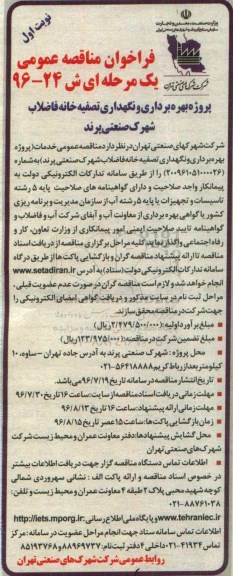 نوبت اول
وزارت صنعت، معدن و تجارت
شرکت شهرکهای صنعتی تهران
فراخوان مناقصه عمومی
یک مرحله ای ش ۲۴-۹۶
پروژه بهره برداری و نگهداری تصفیه خانه فاضلاب
شهرک صنعتی پرند
شرکت شهرکهای صنعتی تهران در نظر دارد مناقصه عمومی خدمات (پروژه
بهره برداری و نگهداری تصفیه خانه فاضلاب شهرک صنعتی پرند) به شماره
(۲۰۰۹۶۱۰۵۱۰۰۰۰۲۶) را از طریق سامانه تدارکات الکترونیکی دولت به
پیمانکار واجد صلاحیت و دارای گواهینامه های صلاحیت پایه ۵ رشته
تاسیسات و تجهیزات یا پایه ۵ رشته آب از سازمان مدیریت و برنامه ریزی
کشور یا گواهی بهره برداری از معاونت آب و آبفای شرکت آب و فاضلاب و
گواهینامه تایید صلاحیت ایمنی امور پیمانکاری از وزارت تعاون، کار و
رفاه اجتماعی واگذار نماید کلیه مراحل برگزاری مناقصه از دریافت اسناد
مناقصه تا ارائه پیشنهاد مناقصه گران و بازگشایی پاکت ها از طریق درگاه
سامانه تدارکات الکترونیکی دولت (ستاد) به آدرس www.setadiran.ir
انجام خواهد شد و لازم است مناقصه گران در صورت عدم عضویت قبلی،
مراحل ثبت نام در سایت مذکور و دریافت گواهی امضای الکترونیکی را
جهت شرکت در مناقصه محقق سازند.
مبلغ برآورد اولیه: (۲/۴۷۹/۵۰۰/۰۰۰ ریال)
مبلغ تضمین شرکت در مناقصه: (۱۲۳/۹۷۵/۰۰۰ ریال)
محل پروژه: شهرک صنعتی پرند به آدرس جاده تهران - ساوه، ۱۰
کیلومتر بعد از رباط کریم ۵۶۴۱۸۸۸۸-۰۲۱
تاریخ انتشار مناقصه در سامانه تاریخ ۹۶/۷/۱۹ می باشد.
مهلت زمانی دریافت اسناد مناقصه از سایت: ساعت ۱۶ تاریخ ۹۶/۷/۳۰
مهلت زمانی ارائه پیشنهاد: ساعت ۱۶ تاریخ ۹۶/۸/۱۳
زمان بازگشایی پاکت ها: ساعت ۱۵ عصر تاریخ ۹۶/۸/۱۵
محل گشایش پیشنهادها: دفتر معاونت عمران و محیط زیست شرکت
شهرک های صنعتی تهران
اطلاعات تماس دستگاه مناقصه گزار جهت دریافت اطلاعات بیشتر
در خصوص اسناد مناقصه و ارائه پاکت الف: نشانی سهروردی شمالی
کوچه شهید محبی پلاک ۲ طبقه ۴ معاونت عمران و محیط زیست و تلفن:
۸۸۷۶۱۰۳۸-۰۲۱
www.tehraniec.ir و پایگاه ملی اطلاع رسانی: http://iets.mporg.ir
اطلاعات تماس سامانه ستاد جهت انجام مراحل عضویت در سامانه: مرکز
تماس ۴۱۹۳۴-۰۲۱ داخلی ۴ دفتر ثبت نام: ۸۸۹۶۹۷۳۷ و ۸۵۱۹۳۷۶۸
روابط عمومی شرکت شهرک های صنعتی تهران